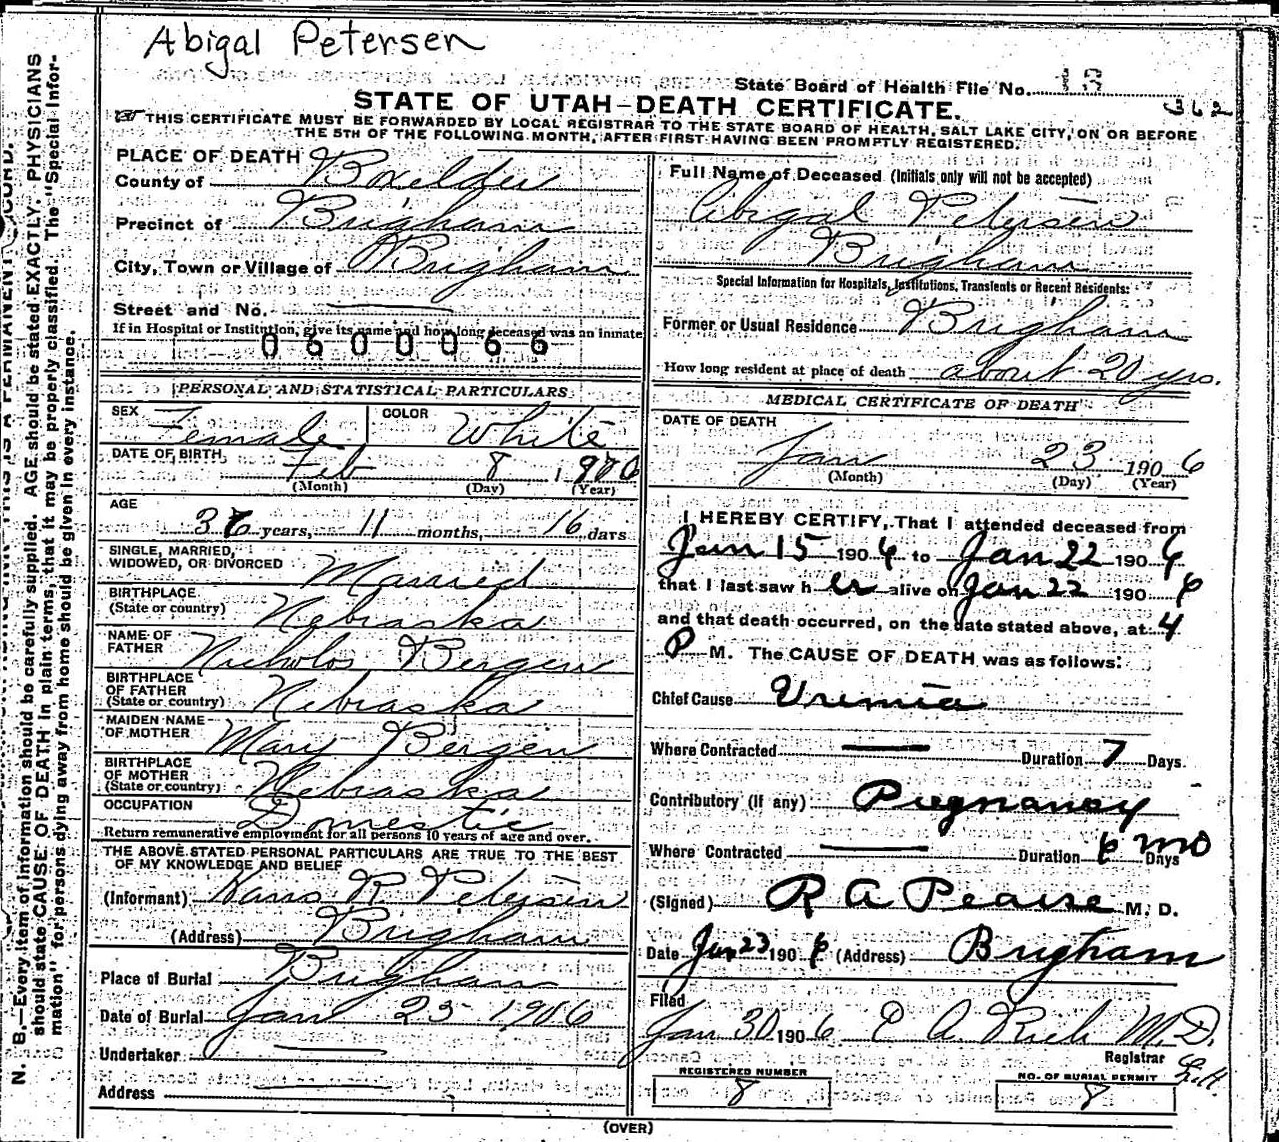 Abigal Petersen
State Board of Health File No. 13
362
STATE OF UTAH—DEATH CERTIFICATE.
THIS CERTIFICATE MUST BE FORWARDED BY LOCAL REGISTRAR TO THE STATE BOARD OF HEALTH, SALT LAKE CITY, ON OR BEFORE
THE 5TH OF THE FOLLOWING MONTH, AFTER FIRST HAVING BEEN PROMPTLY REGISTERED.
PLACE OF DEATH
County of Boxelder
Precinct of Brigham
City, Town or Village of Brigham
Street and No.
If in Hospital or Institution, give its name and how long deceased was an inmate
0600066
PERSONAL AND STATISTICAL PARTICULARS
SEX Female COLOR White
DATE OF BIRTH Feb 8 1906
(Month) (Day) (Year)
AGE
36 years, 11 months, 16 days
SINGLE, MARRIED,
WIDOWED, OR DIVORCED Married
BIRTHPLACE
(State or country) Nebraska
NAME OF
FATHER Nicholos Bergen
BIRTHPLACE
OF FATHER
(State or country) Nebraska
MAIDEN NAME
OF MOTHER Mary Bergen
BIRTHPLACE
OF MOTHER
(State or country) Nebraska
OCCUPATION Domestic
Return remunerative employment for all persons 10 years of age and over.
THE ABOVE STATED PERSONAL PARTICULARS ARE TRUE TO THE BEST
OF MY KNOWLEDGE AND BELIEF
(Informant) Hans R Petersen
(Address) Brigham
Place of Burial Brigham
Date of Burial Jan 25 1906
Undertaker
Address
Full Name of Deceased (Initials only will not be accepted)
Abigal Petersen
Brigham
Special Information for Hospitals, Institutions, Transients or Recent Residents:
Former or Usual Residence Brigham
How long resident at place of death about 20 yrs.
MEDICAL CERTIFICATE OF DEATH
DATE OF DEATH
Jan 23 1906
(Month) (Day) (Year)
I HEREBY CERTIFY, That I attended deceased from
Jan 15 1906 to Jan 22 1906
that I last saw her alive on Jan 22 1906
and that death occurred, on the date stated above, at 4
P M. The CAUSE OF DEATH was as follows:
Chief Cause Uremia
Where Contracted Duration 7 Days.
Contributory (if any) Pregnancy
Where Contracted Duration 6 mo Days
(Signed) R A Pearse M. D.
Date Jan 23 1906 (Address) Brigham
Filed
Jan 30 1906 E A Rich M.D.
Registrar
REGISTERED NUMBER
8
NO. OF BURIAL PERMIT
8
(OVER)
N. B.—Every item of information should be carefully supplied. AGE should be stated EXACTLY. PHYSICIANS
should state CAUSE OF DEATH in plain terms, that it may be properly classified. The "Special Infor-
mation" for persons dying away from home should be given in every instance.